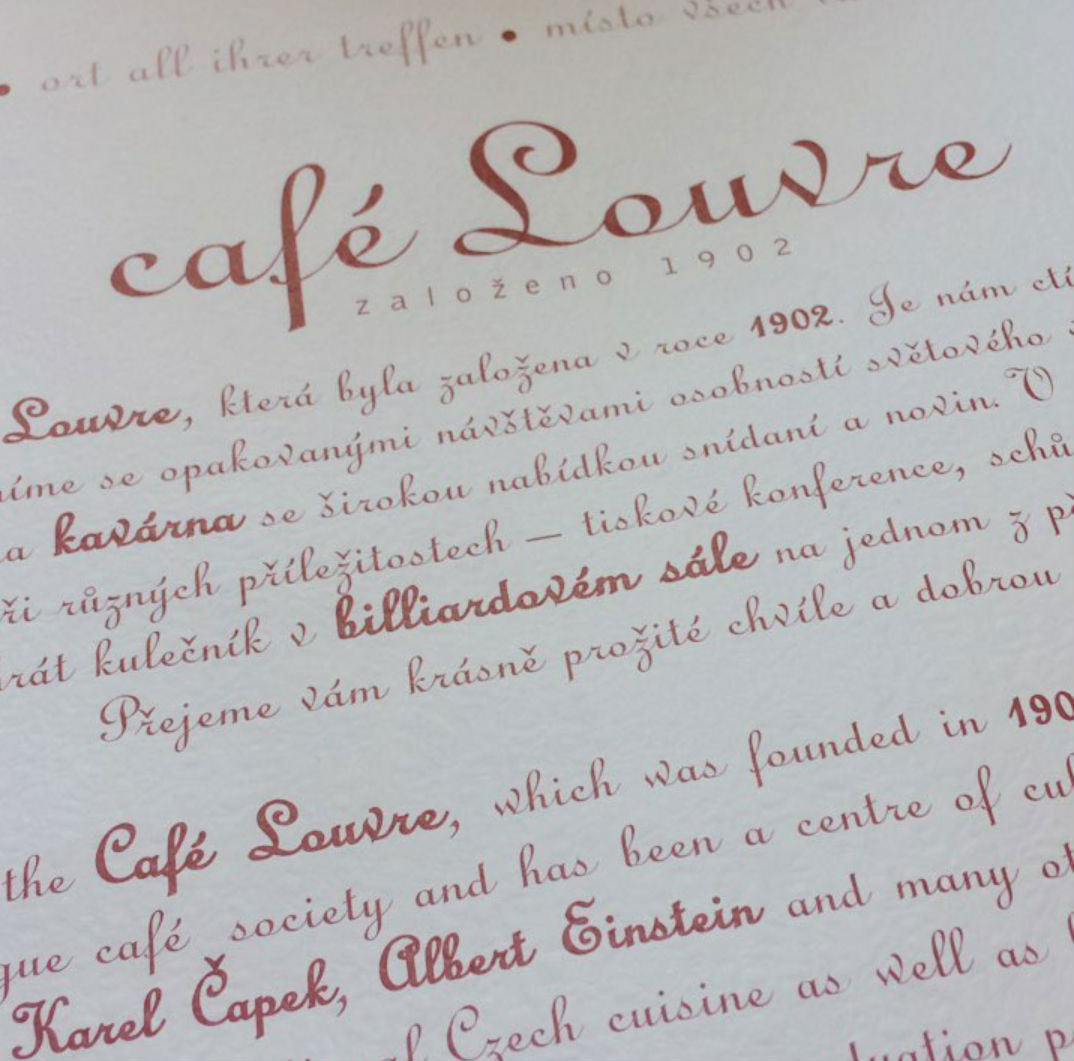 • ort all ihrer treffen • místo všech
café Louvre
založeno 1902
Louvre, která byla založena v roce 1902. Je nám ctí
se opakovanými návštěvami osobností světového
kavárna se širokou nabídkou snídaní a novin. V
různých příležitostech – tiskové konference,
kulečník v billiardovém sále na jednom z
Přejeme vám krásně prožité chvíle a dobrou
the Café Louvre, which was founded in
café society and has been a centre of
Karel Čapek, Albert Einstein and many
Czech cuisine as well as